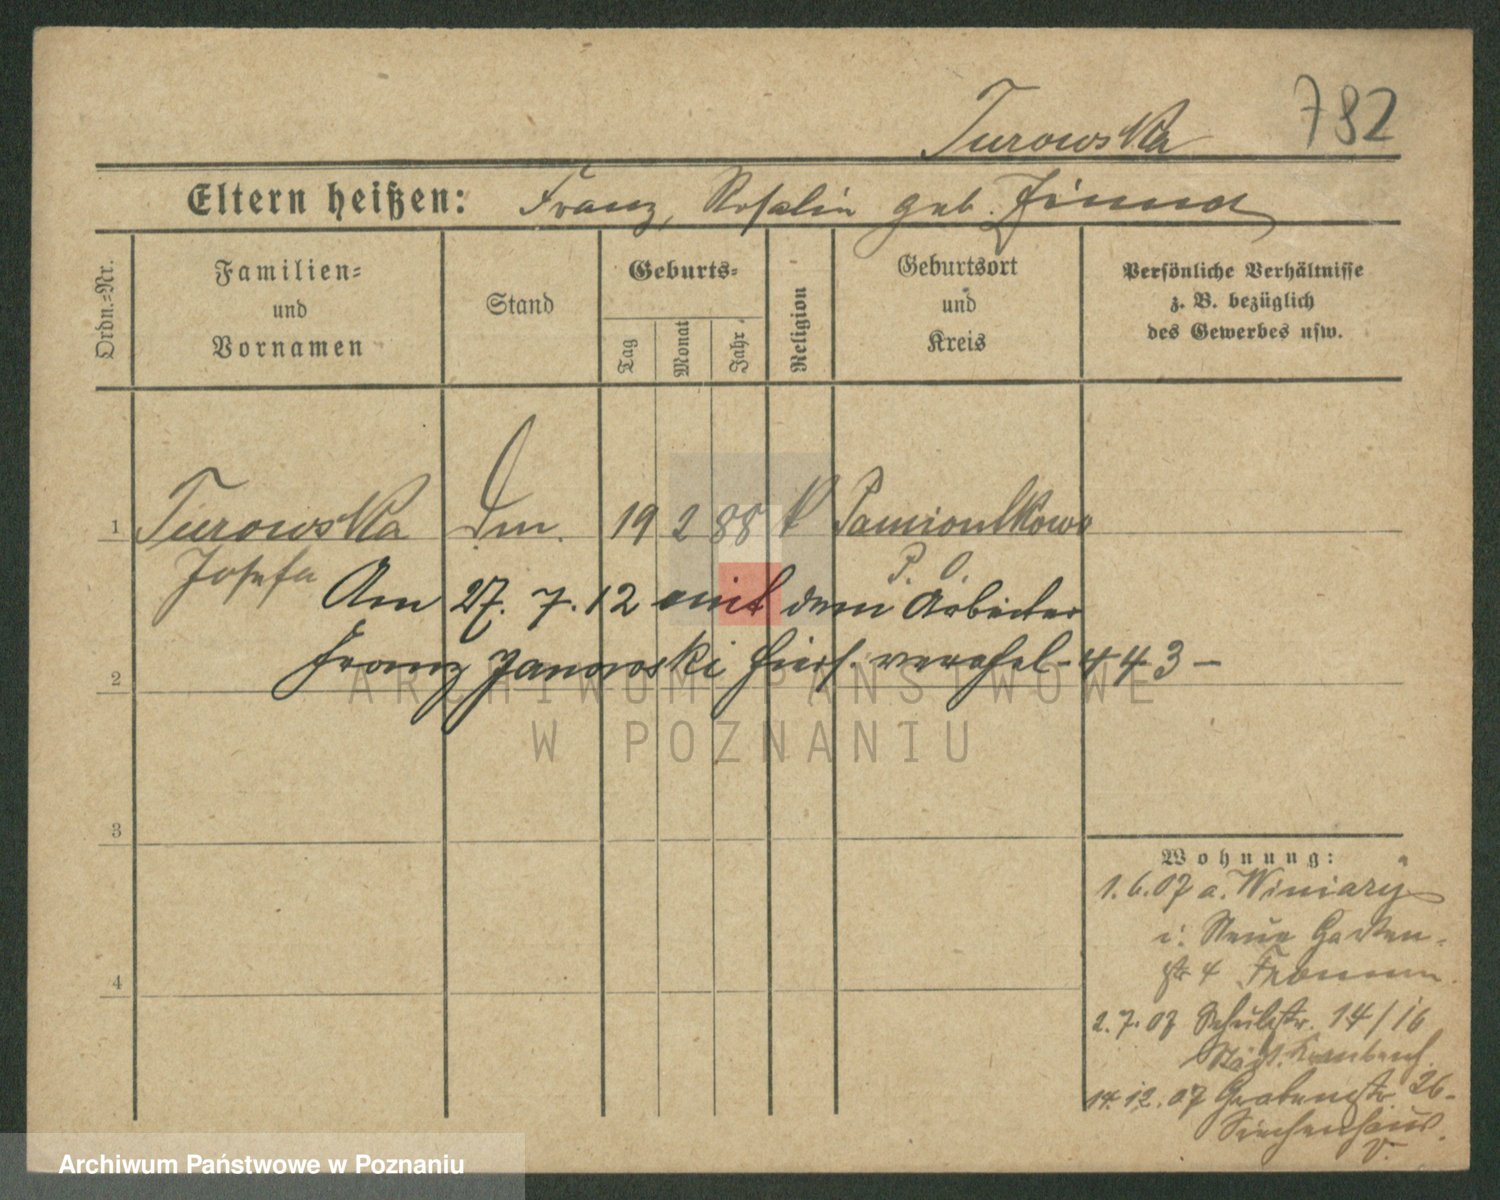 782
Turowska
Eltern heißen: Franz, Rosalie geb. Zimna
Ordn.=Nr.
Familien=
und
Vornamen
Stand
Geburts=
Tag
Monat
Jahr
Religion
Geburtsort
und
Kreis
Persönliche Verhältnisse
z. B. bezüglich
des Gewerbes usw.
1 Turowska 19 2 88 k Pamiontkowo
Josefa P. O.
Am 27. 7. 12 mit dem Arbeiter
Franz Janowski hier verehel. 443
2
3
4
Wohnung:
1.6.07 a. Winiary
i. Neue Garten=
str 4
2.7.07 Schulstr. 14/16
Städt. Krankenh.
14.12.07 Grabenstr 26
Siechenhaus
v.
ARCHIWUM PAŃSTWOWE
W POZNANIU
Archiwum Państwowe w Poznaniu